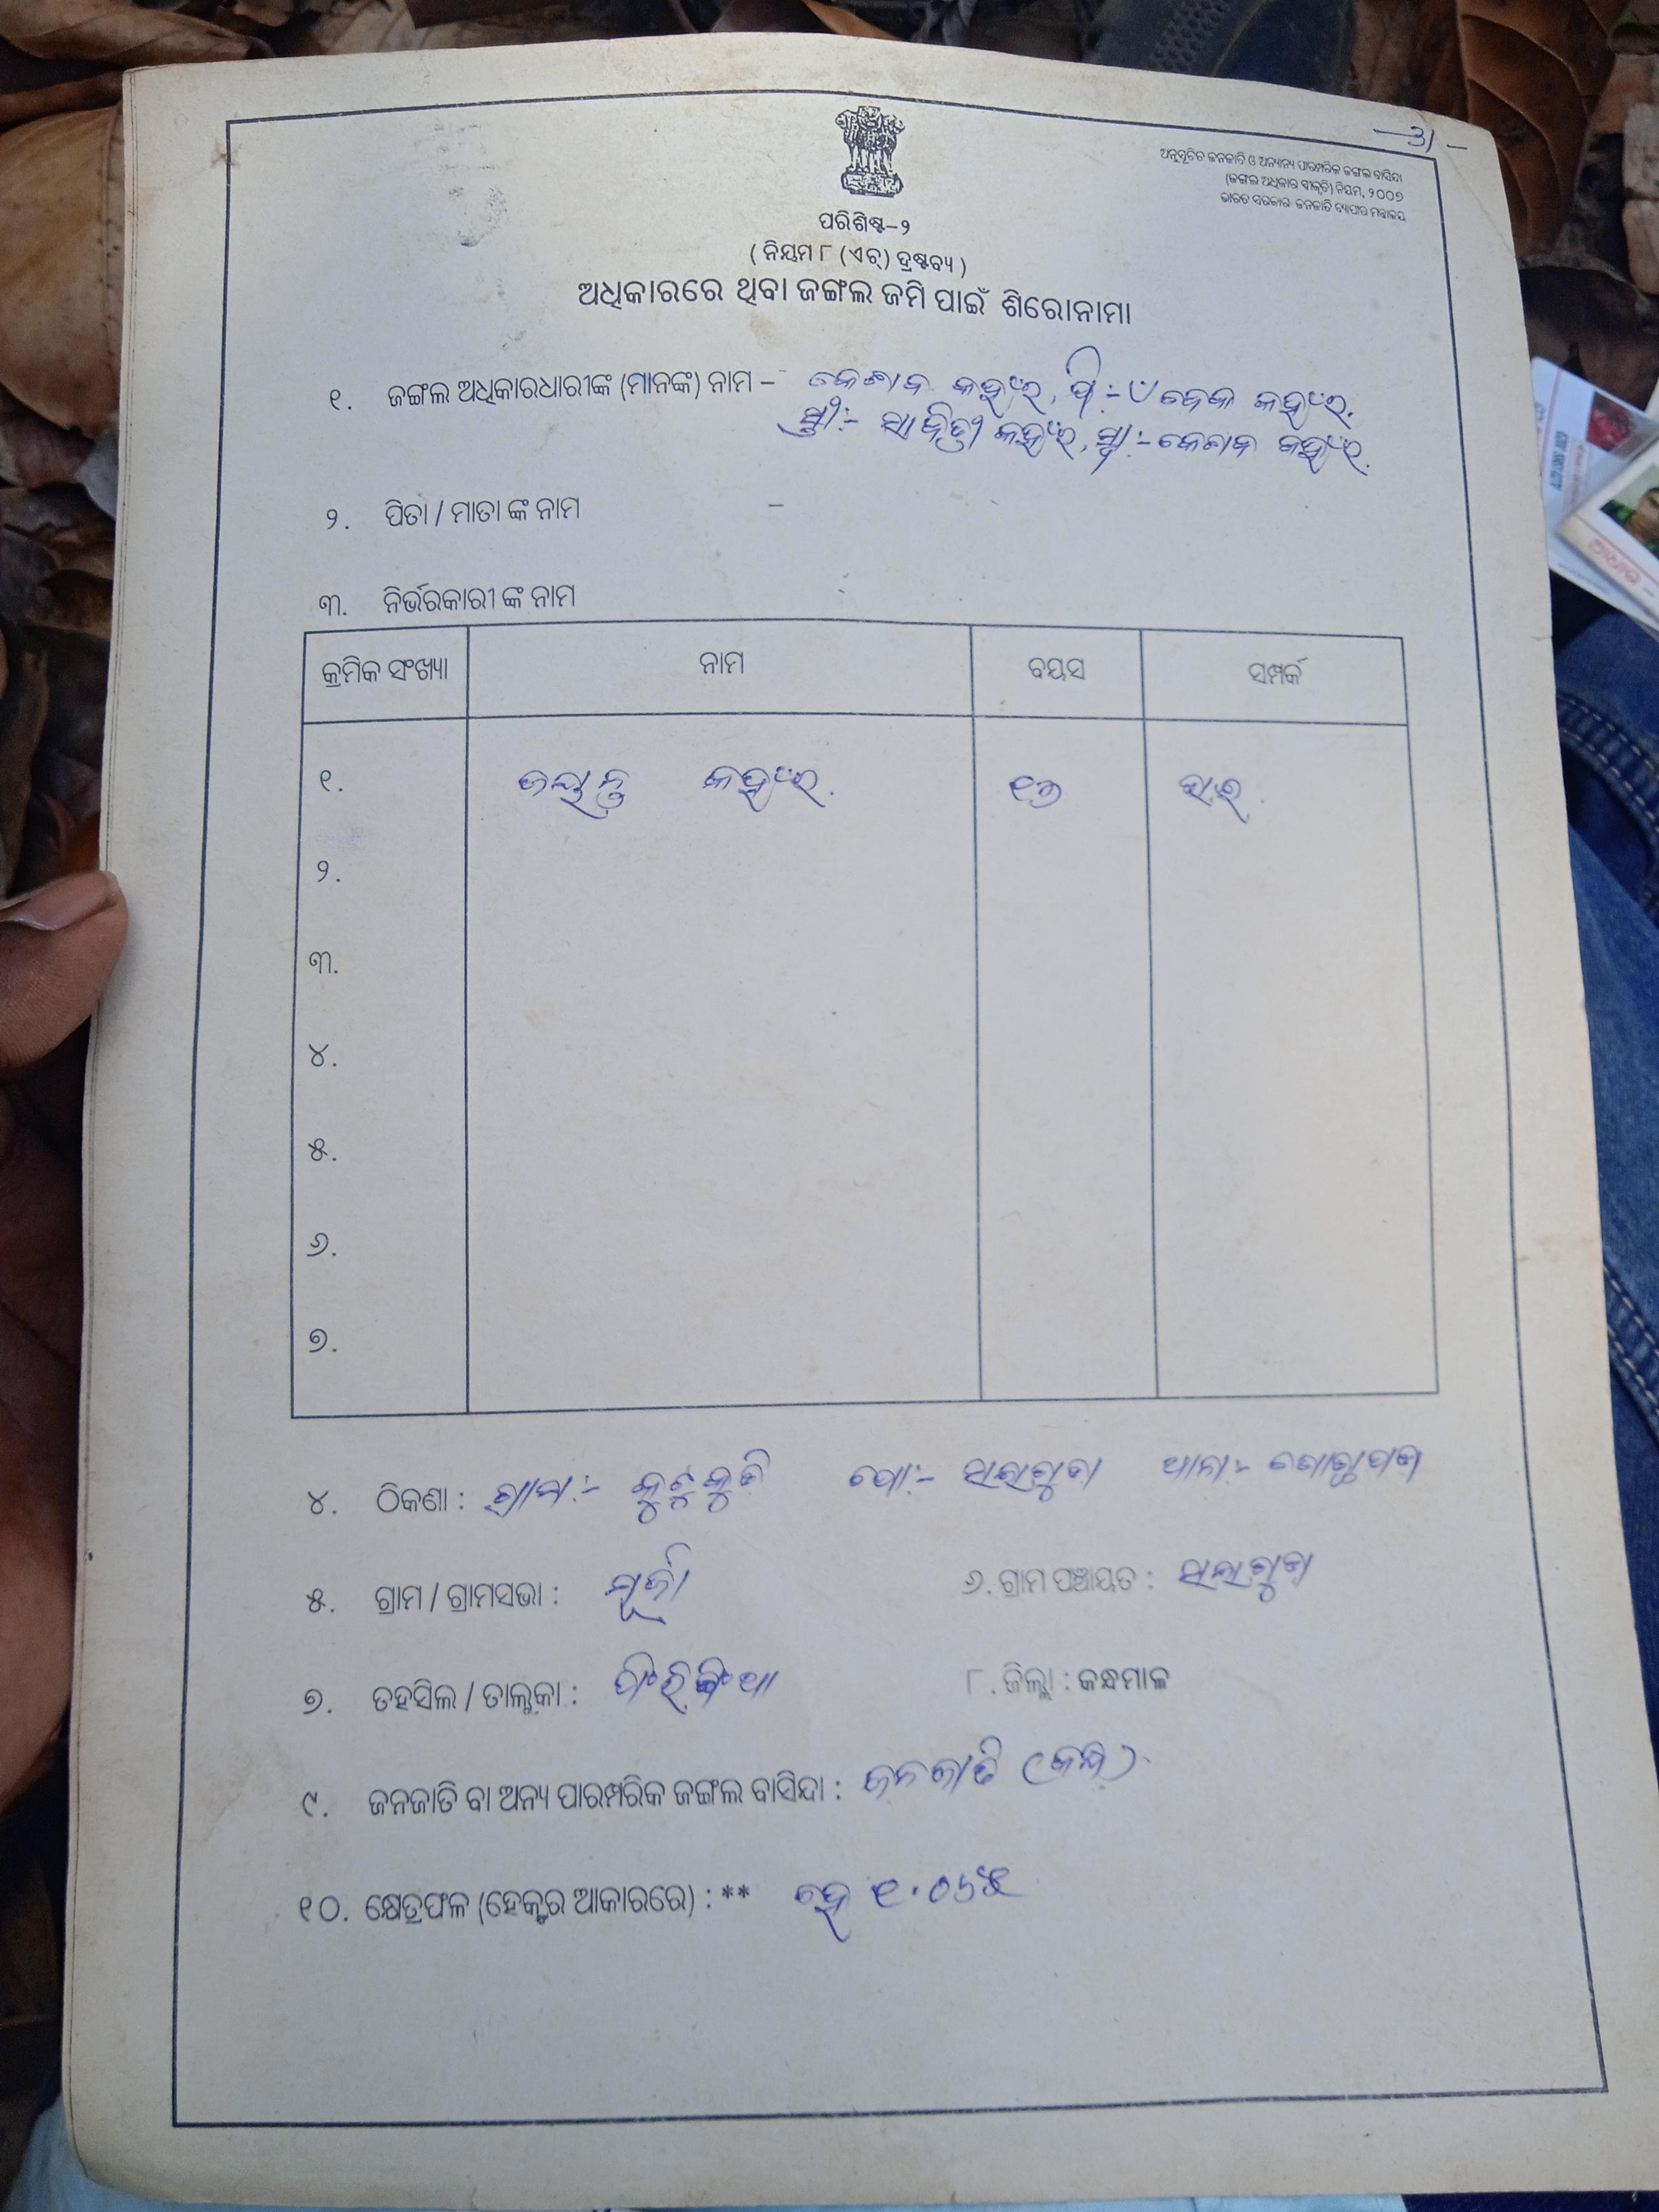 —3/—
ଅନୁସୂଚିତ ଜନଜାତି ଓ ଅନ୍ୟାନ୍ୟ ପାରମ୍ପରିକ ଜଙ୍ଗଲ ବାସିନ୍ଦା
(ଜଙ୍ଗଲ ଅଧିକାର ସ୍ୱୀକୃତି) ନିୟମ, ୨୦୦୭
ଭାରତ ସରକାର ଜନଜାତି ବ୍ୟାପାର ମନ୍ତ୍ରାଳୟ
ପରିଶିଷ୍ଟ-୨
( ନିୟମ ୮ (ଏଚ୍) ଦ୍ରଷ୍ଟବ୍ୟ )
ଅଧିକାରରେ ଥିବା ଜଙ୍ଗଲ ଜମି ପାଇଁ ଶିରୋନାମା
୧. ଜଙ୍ଗଲ ଅଧିକାରଧାରୀଙ୍କ (ମାନଙ୍କ) ନାମ – କେଶବ କହଁର, ପି:- କହଁର.
ସ୍ତ୍ରୀ:- ସାବିତ୍ରୀ କହଁର, ସ୍ୱା:- କେଶବ କହଁର.
୨. ପିତା / ମାତା ଙ୍କ ନାମ –
୩. ନିର୍ଭରକାରୀ ଙ୍କ ନାମ
କ୍ରମିକ ସଂଖ୍ୟା ନାମ ବୟସ ସମ୍ପର୍କ
୧. ଜୟନ୍ତ କହଁର. ୧୬
୨.
୩.
୪.
୫.
୬.
୭.
୪. ଠିକଣା : ଗ୍ରାମ:- ପୋ:- ସାଲାଗୁଡା ଥାନା:-
୫. ଗ୍ରାମ / ଗ୍ରାମସଭା : ୬. ଗ୍ରାମ ପଞ୍ଚାୟତ : ସାଲାଗୁଡା
୭. ତହସିଲ / ତାଲୁକା : ୮. ଜିଲ୍ଲା : କନ୍ଧମାଳ
୯. ଜନଜାତି ବା ଅନ୍ୟ ପାରମ୍ପରିକ ଜଙ୍ଗଲ ବାସିନ୍ଦା : ଜନଜାତି (କନ୍ଧ)
୧୦. କ୍ଷେତ୍ରଫଳ (ହେକ୍ଟର ଆକାରରେ) : ** ହେ